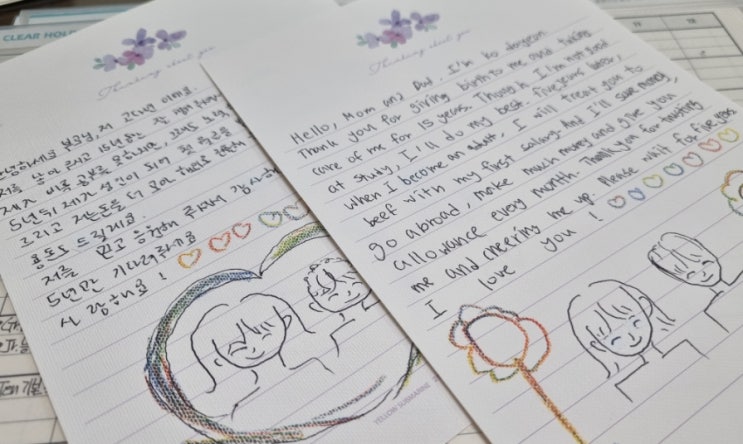 CLEAR HOL
Thinking about you
부모님, 저
저를 낳아 주시고 15년
제가 비록 공부를 못하지만,
5년 뒤 제가 성인이 되어 첫 월급을
그리고 돈을 더 모아 해외로
용돈도 드릴게요.
저를 믿고 응원해 주셔서 감사해
5년만 기다려주세요
사랑해요!
YELLOW SUBMARINE
Thinking about you
Hello, Mom and Dad. I'm ko dongeon
Thank you for giving birth to me and taking
care of me for 15 years. Though I'm not good
at study, I'll do my best. five years later,
when I become an adult, I will treat you to
beef with my first salary. And I'll save money,
go abroad, make much money and give you
allowance every month. Thank you for trusting
me and cheering me up. Please wait for five years
I love you!